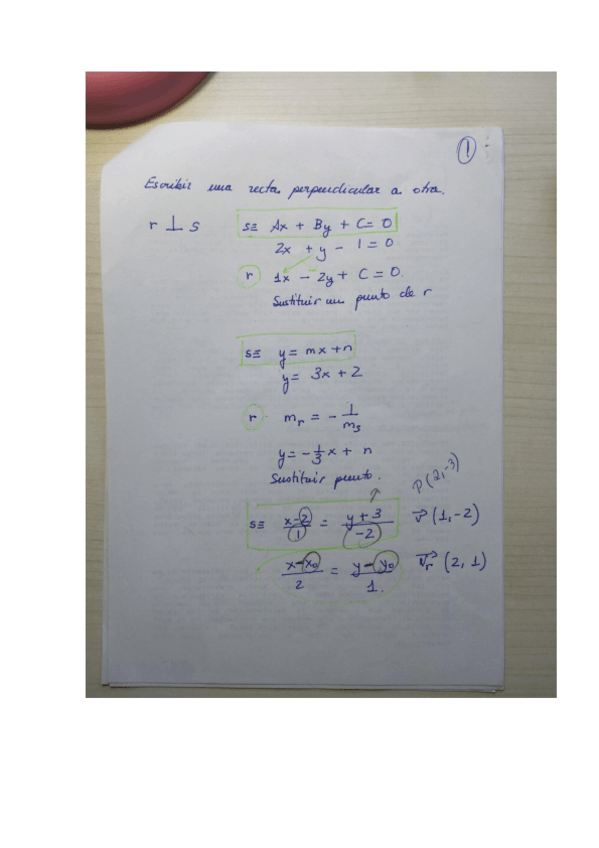 1
Escribir una recta perpendicular a otra.
r ⊥ s   s≡ Ax + By + C = 0
2x + y - 1 = 0
r   1x - 2y + C = 0.
Sustituir un punto de r
s≡ y = mx + n
y = 3x + 2
r   m_r = - 1/m_s
y = - 1/3 x + n
Sustituir punto.
P(2,-3)
s≡ (x-2)/1 = (y+3)/-2   v⃗ (1,-2)
(x-x₀)/2 = (y-y₀)/1.   v⃗_r (2, 1)